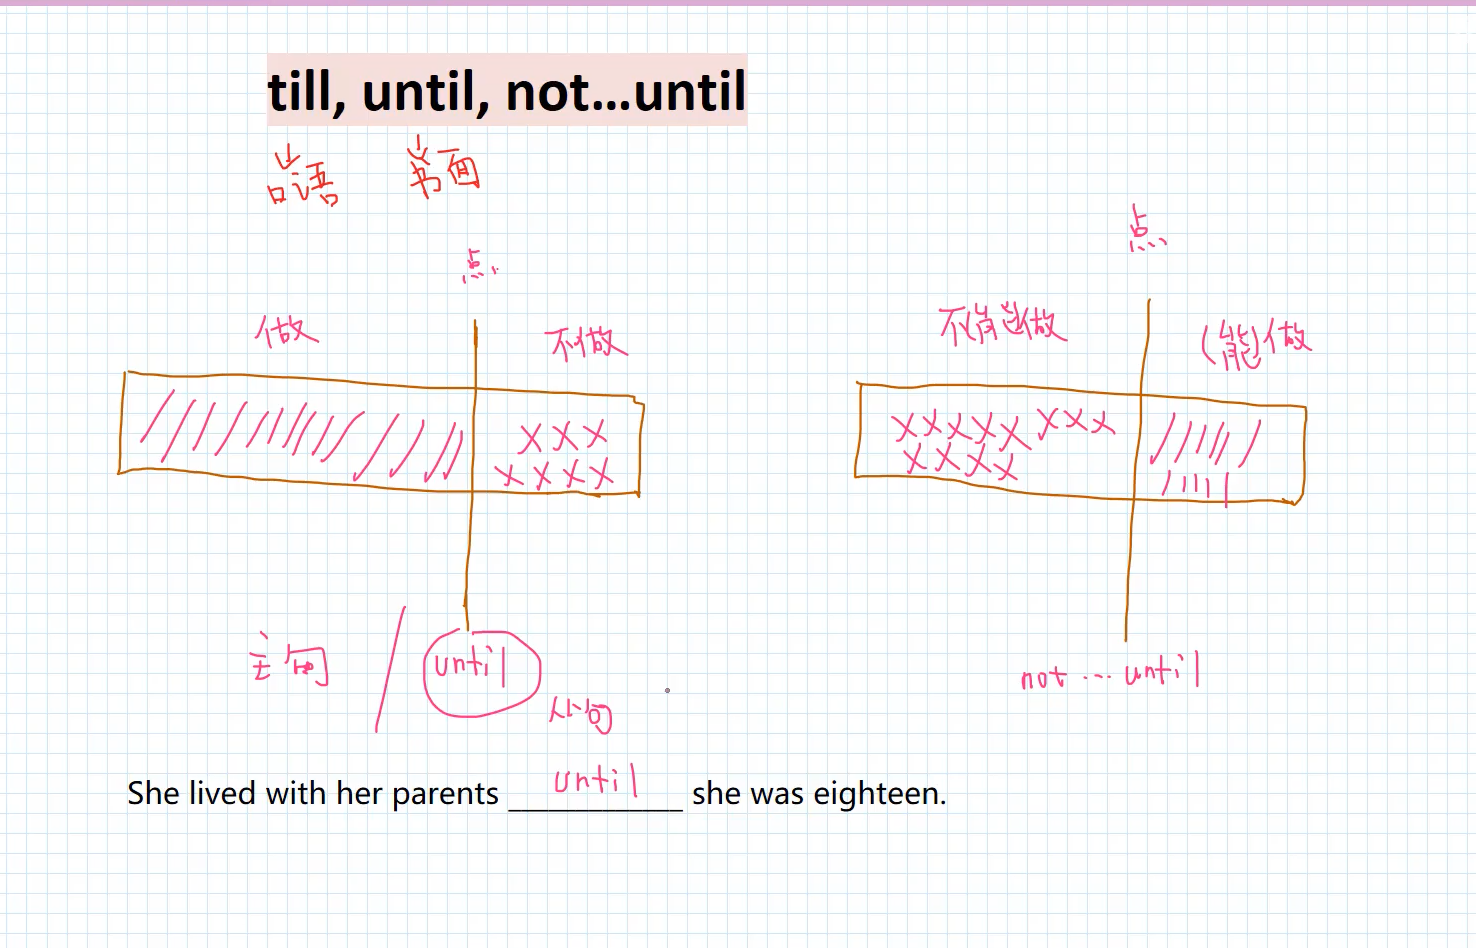 till, until, not...until
口语 书面
点
点
做 不做
不能做 (能)做
主句 until 从句
not ... until
She lived with her parents until she was eighteen.